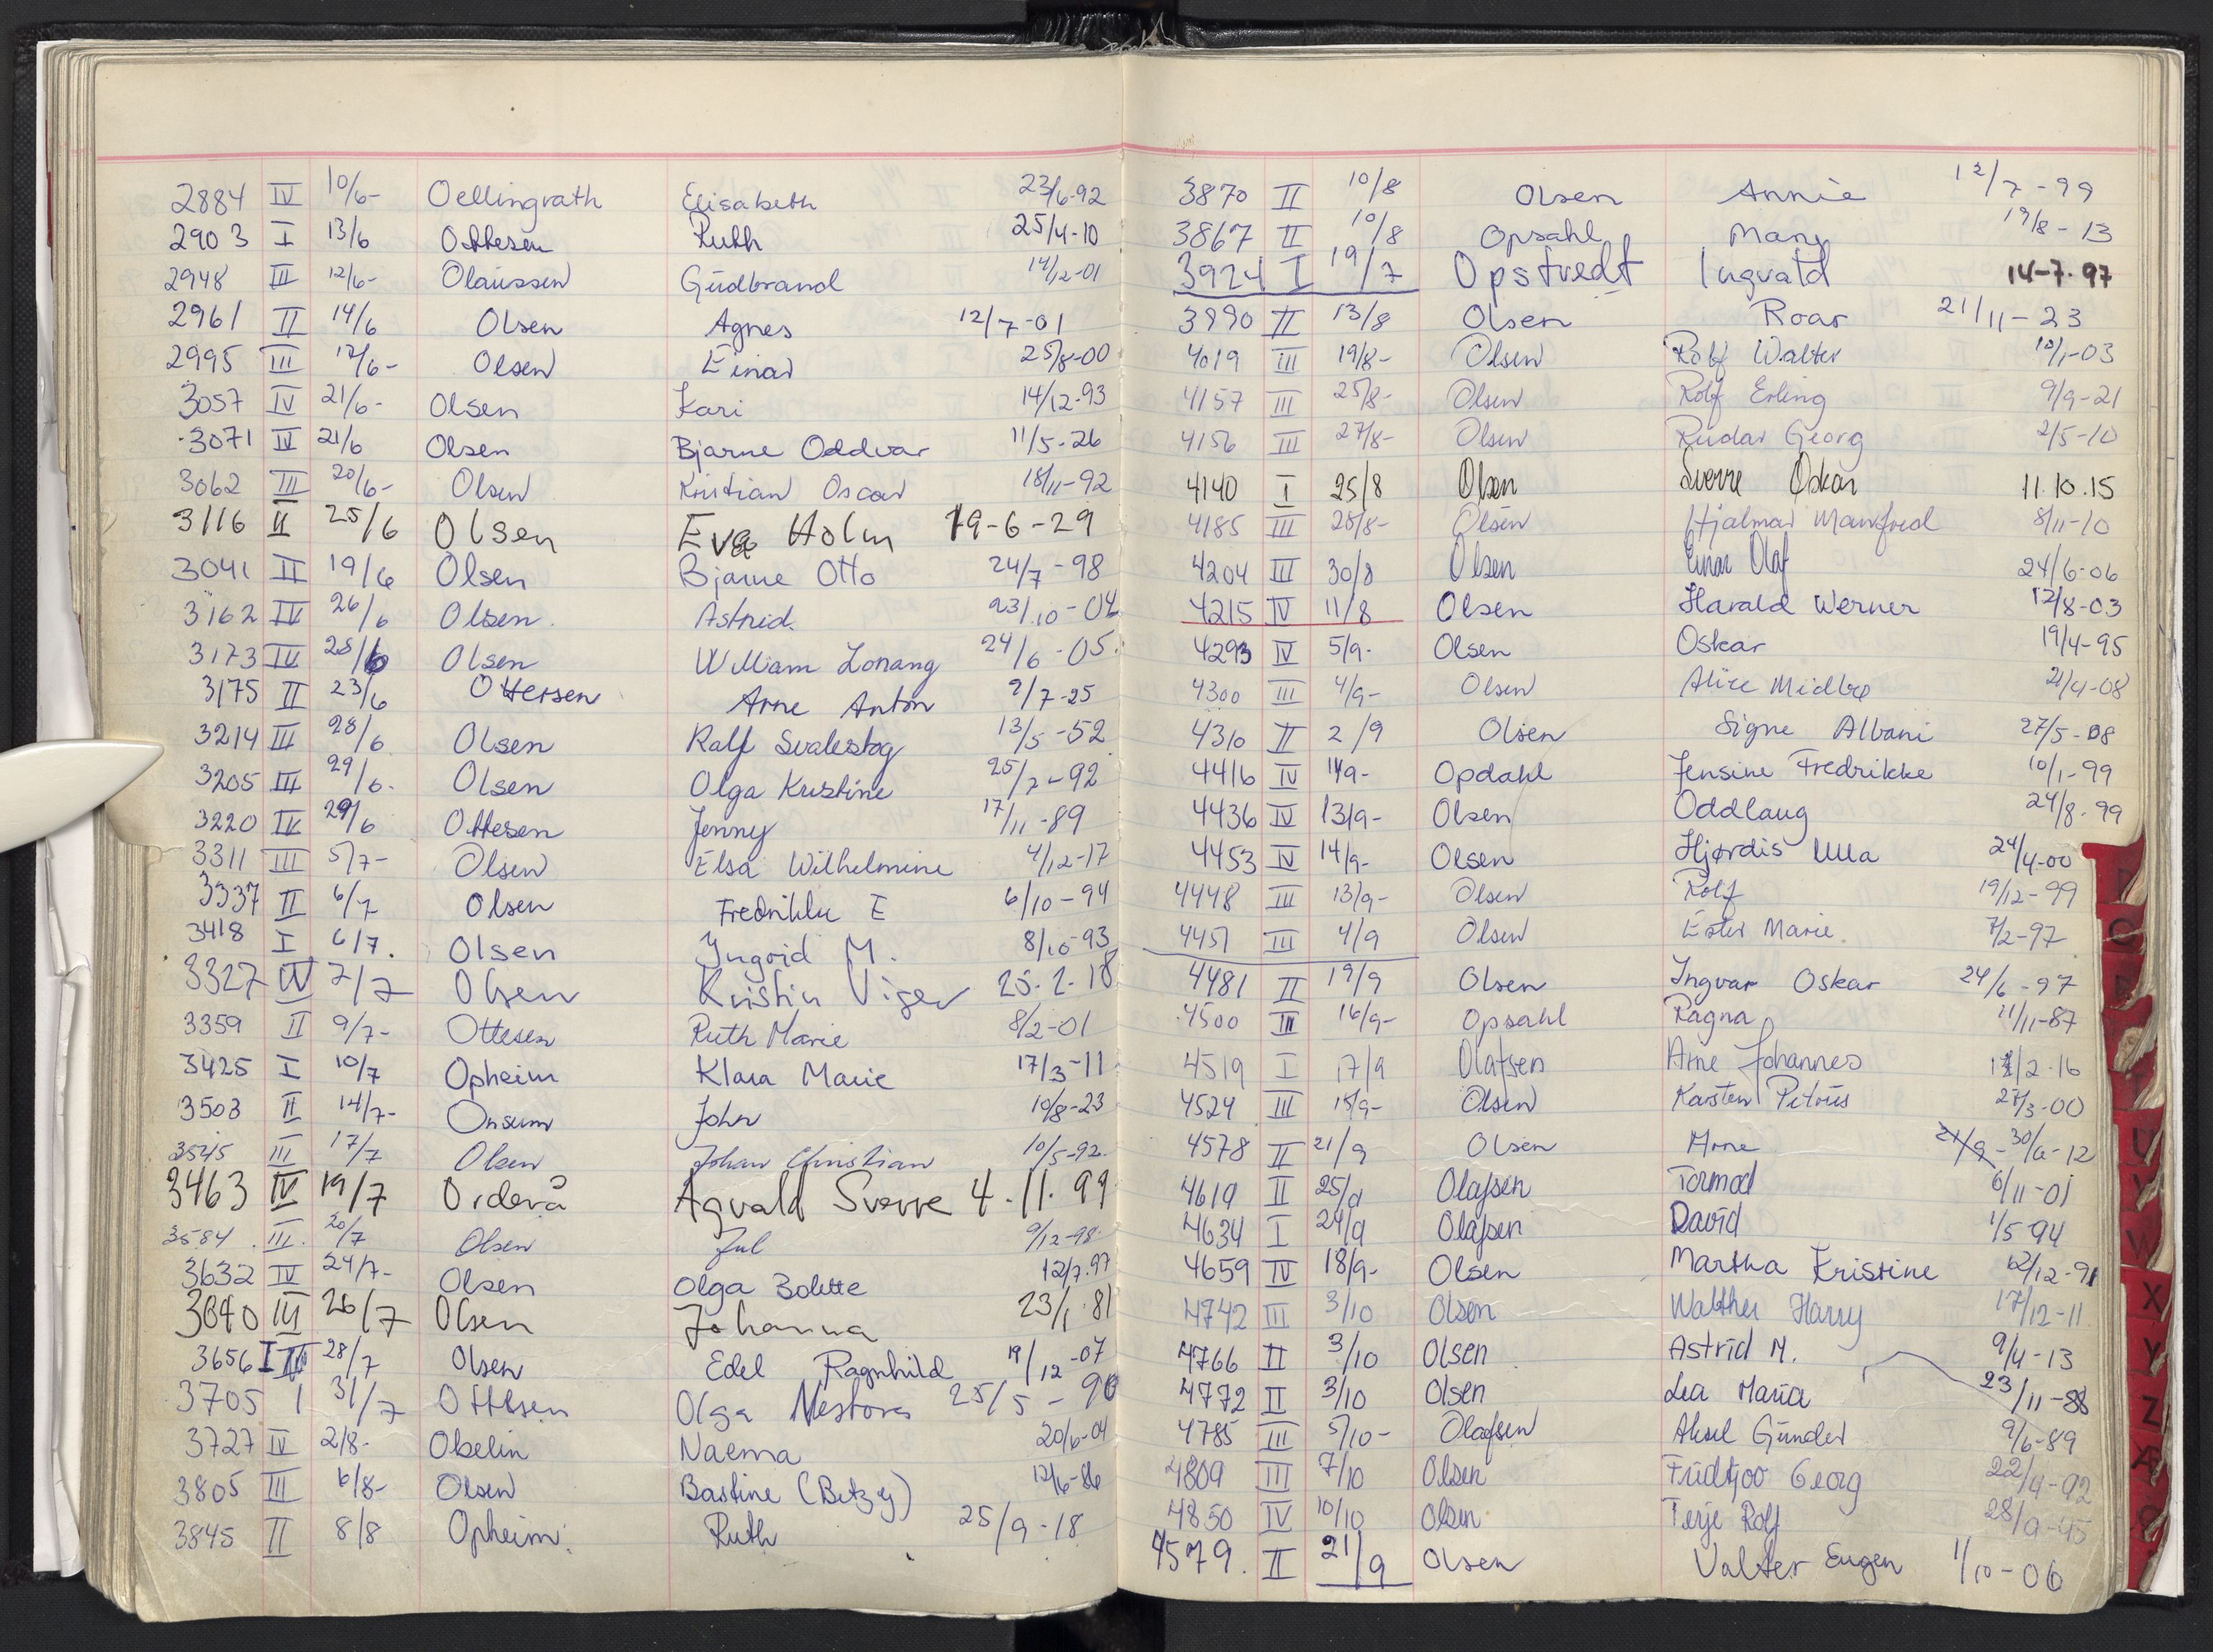 2884 IV 10/6- Oellingrath Elisabeth 23/6-92
2903 I 13/6 Ottesen Ruth 25/4-10
2948 III 12/6- Olaussen Gudbrand 14/12-01
2961 II 14/6 Olsen Agnes 12/7-01
2995 III 17/6- Olsen Einar 25/8-00
3057 IV 21/6- Olsen Kari 14/12-93
3071 IV 21/6 Olsen Bjarne Oddvar 11/5-26
3062 III 20/6- Olsen Kristian Oscar 18/11-92
3116 II 25/6 Olsen Eva Holm 19-6-29
3041 II 19/6 Olsen Bjarne Otto 24/7-98
3162 IV 26/6 Olsen Astrid 23/10-04
3173 IV 28/6 Olsen William Lorang 24/6-05
3175 II 23/6 Ottersen Arne Anton 2/7-25
3214 III 28/6 Olsen Ralf Svalestog 13/5-52
3205 III 29/6 Olsen Olga Kristine 25/7-92
3220 IV 29/6 Ottesen Jenny 17/11-89
3311 III 5/7- Olsen Elsa Wilhelmine 4/12-17
3337 II 6/7 Olsen Fredrikke E 6/10-94
3418 I 6/7. Olsen Ingrid M. 8/10-93
3327 IV 7/7 Olsen Kristin Viger 25.2.18
3359 II 9/7- Ottesen Ruth Marie 8/2-01
3425 I 10/7 Opheim Klara Marie 17/3-11
3503 II 14/7- Onsum John 10/8-23
3545 III 17/7 Olsen Johan Christian 10/5-92
3463 IV 19/7 Orderå Agvald Sverre 4.11.99
3584 III 20/7 Olsen Jul 9/12-98
3632 IV 24/7- Olsen Olga Bolette 12/7.97
3640 III 26/7 Olsen Johanna 23/1.81
3656 28/7 Olsen Edel Ragnhild 19/12-07
3705 I 31/7 Ottesen Olga 25/5-90
3727 IV 2/8- Obelin Naema 20/6-04
3805 III 6/8- Olsen Bastine (Betzy) 12/6-86
3845 II 8/8 Opheim Ruth 25/9-18
3870 II 10/8 Olsen Annie 12/7-99
3867 II 10/8 Opsahl Mary 19/8-13
3924 I 19/7 Opstvedt Ingvald 14-7-97
3990 II 13/8 Olsen Roar 21/11-23
4019 III 19/8- Olsen Rolf Walter 10/1-03
4157 III 25/8- Olsen Rolf Erling 9/9-21
4156 III 27/8- Olsen Rudar Georg 2/5-10
4140 I 25/8 Olsen Sverre Oskar 11.10.15
4185 III 28/8- Olsen Hjalmar Manfred 8/11-10
4204 III 30/8 Olsen Einar Olaf 24/6-06
4215 IV 11/8 Olsen Harald Werner 12/8-03
4293 IV 5/9- Olsen Oskar 19/4-95
4300 III 4/9- Olsen Alice Midbrø 21/4-08
4310 II 2/9 Olsen Signe Albani 27/5-08
4416 IV 11/9- Opdahl Jensine Fredrikke 10/1-99
4436 IV 13/9- Olsen Oddlaug 24/8-99
4453 IV 14/9- Olsen Hjørdis Ulla 24/4-00
4448 III 13/9- Olsen Rolf 19/12-99
4451 III 4/9 Olsen Ester Marie 7/2-97
4481 II 19/9 Olsen Ingvar Oskar 24/6-97
4500 III 16/9- Opsahl Ragna 11/11-87
4519 I 17/9 Olafsen Arne Johannes 2-16
4524 III 15/9- Olsen Karsten Petrus 27/3-00
4578 II 21/9 Olsen Arne 21/9-30/6-12
4619 II 25/9 Olafsen Tormod 6/11-01
4634 I 24/9 Olafsen David 1/5-94
4659 IV 18/9- Olsen Martha Kristine 12/12-91
4742 III 3/10 Olsen Walther Harry 17/12-11
4766 II 3/10 Olsen Astrid M. 9/4-13
4772 II 3/10 Olsen Lea Maria 23/11-88
4785 III 5/10- Olafsen Aksel Gunder 9/6-89
4809 III 7/10 Olsen Fridtjov Georg 22/4-92
4850 IV 10/10 Olsen Terje Rolf 28/9-45
4579. II 21/9 Olsen Valter Eugen 1/10-06
U
V
W
X
Y
Z
Æ
Ø